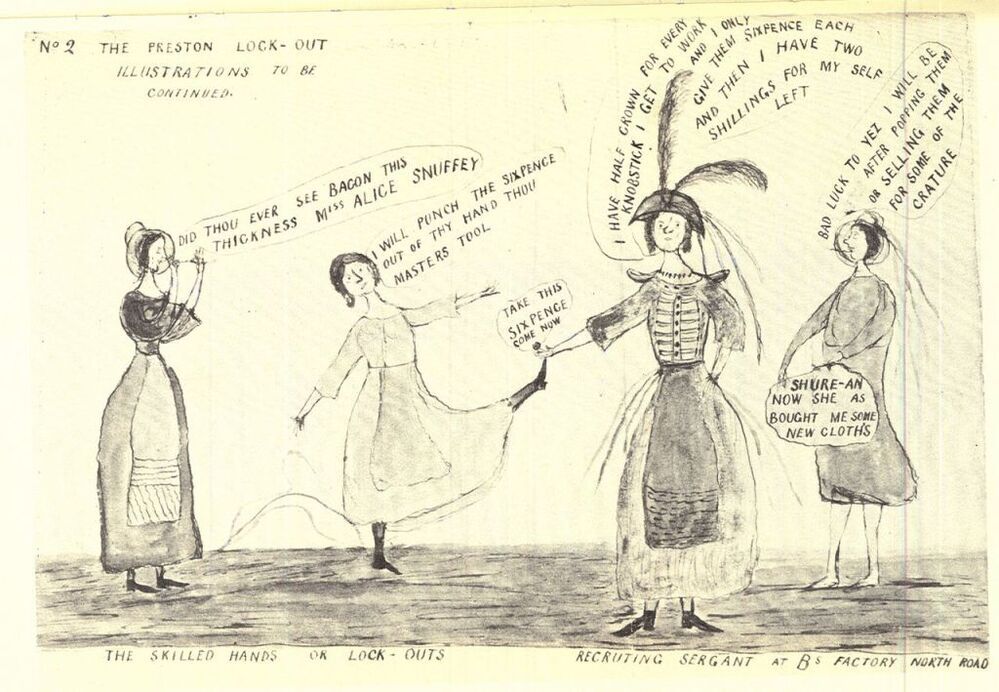 No 2 THE PRESTON LOCK-OUT
ILLUSTRATIONS TO BE
CONTINUED.
DID THOU EVER SEE BACON THIS
THICKNESS MISS ALICE SNUFFEY
I WILL PUNCH THE SIXPENCE
OUT OF THY HAND THOU
MASTERS TOOL
TAKE THIS
SIXPENCE
COME NOW
I HAVE HALF CROWN FOR EVERY
KNOBSTICK I GET TO WORK
AND I ONLY
GIVE THEM SIXPENCE EACH
AND THEN I HAVE TWO
SHILLINGS FOR MY SELF
LEFT
BAD LUCK TO YEZ I WILL BE
AFTER POPPING THEM
OR SELLING THEM
FOR SOME OF THE
CRATURE
SHURE-AN
NOW SHE AS
BOUGHT ME SOME
NEW CLOTHS
THE SKILLED HANDS OR LOCK-OUTS
RECRUTING SERGANT AT Bs FACTORY NORTH ROAD